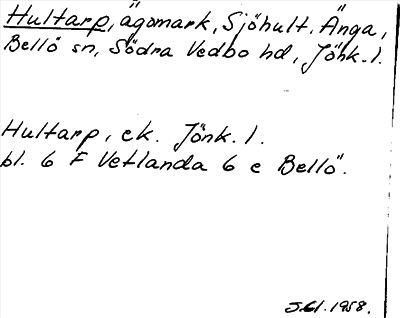 Hultarp, ägomark, Sjöhult, Änga,
Bellö sn, Södra Vedbo hd, Jönk. l.
Hultarp, ek. Jönk. l.
bl. 6 F Vetlanda 6 e Bellö.
1958.